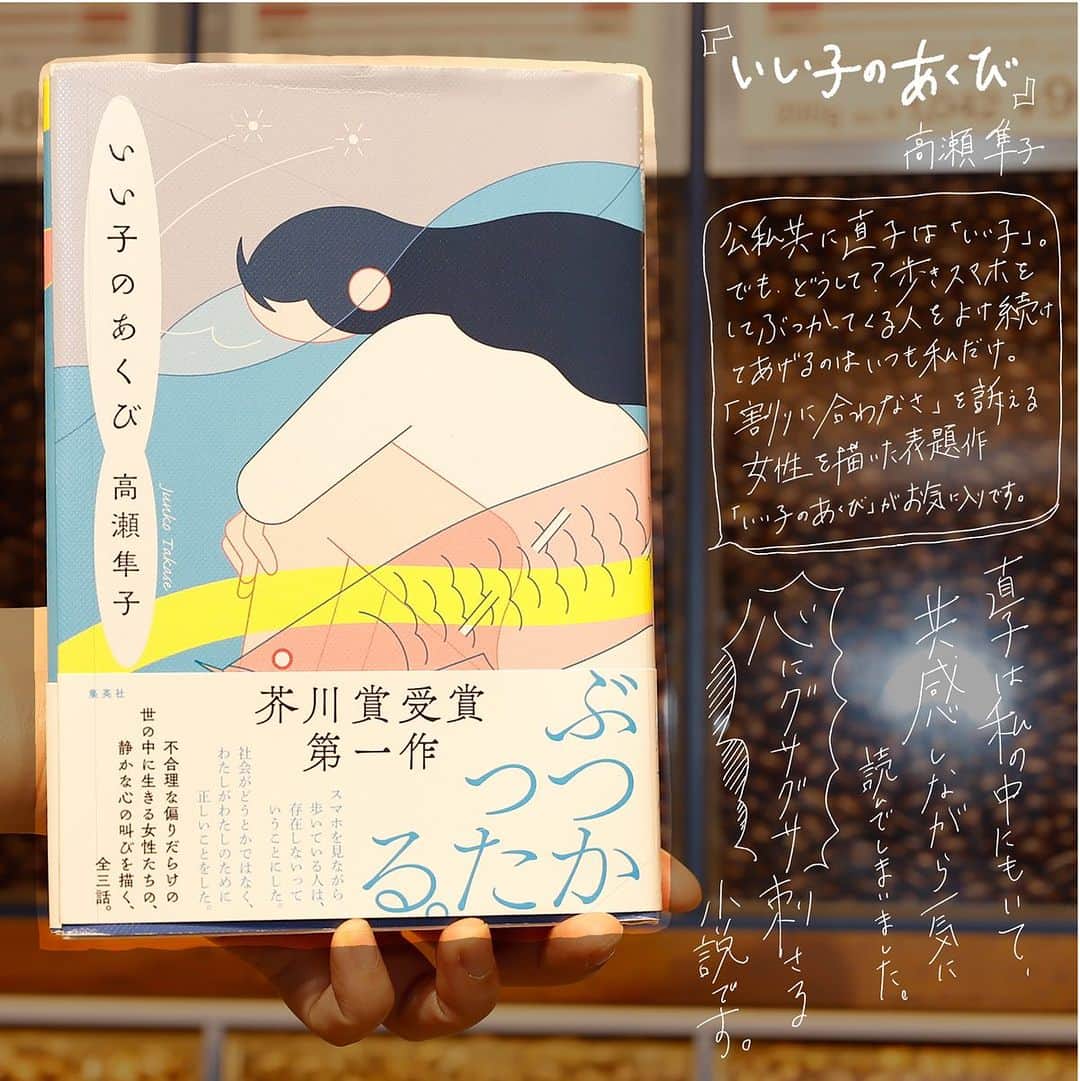 いい子のあくび
高瀬隼子
Junko Takase
集英社
芥川賞受賞
第一作
ぶつか
った
る。
スマホを見ながら
歩いている人は、
存在しないって
いうことにした。
社会がどうとかではなく、
わたしがわたしのために
正しいことをした。
不合理な偏りだらけの
世の中に生きる女性たちの、
静かな心の叫びを描く、
全三話。
『いい子のあくび』
高瀬隼子
公私共に直子は「いい子」。
でも、どうして?歩きスマホを
してぶつかってくる人をよけ続け
てあげるのはいつも私だけ。
「割りに合わなさ」を訴える
女性を描いた表題作
「いい子のあくび」がお気に入りです。
直子は私の中にもいて、
共感しながら一気に
読んでしまいました。
心にグサグサ刺さる
小説です。